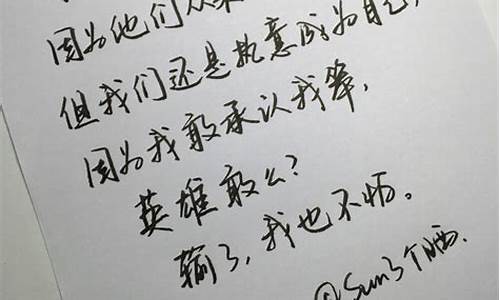 因为他们从来
但我们还是执意成为自己，
因为我敢承认我笨，
英雄敢么？
输了，我也不怕。
@Sun3个